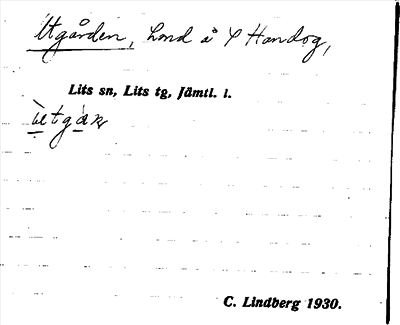 Utgården, hmd å Y Handog,
Lits sn, Lits tg, Jämtl. l.
C. Lindberg 1930.